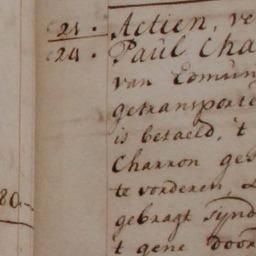 21. Actien, ve
24. Paul Cha
van Edmun
getransporte
is betaeld, 't
Charron ges
te vorderen,
80
gebragt sijnd
t gene door